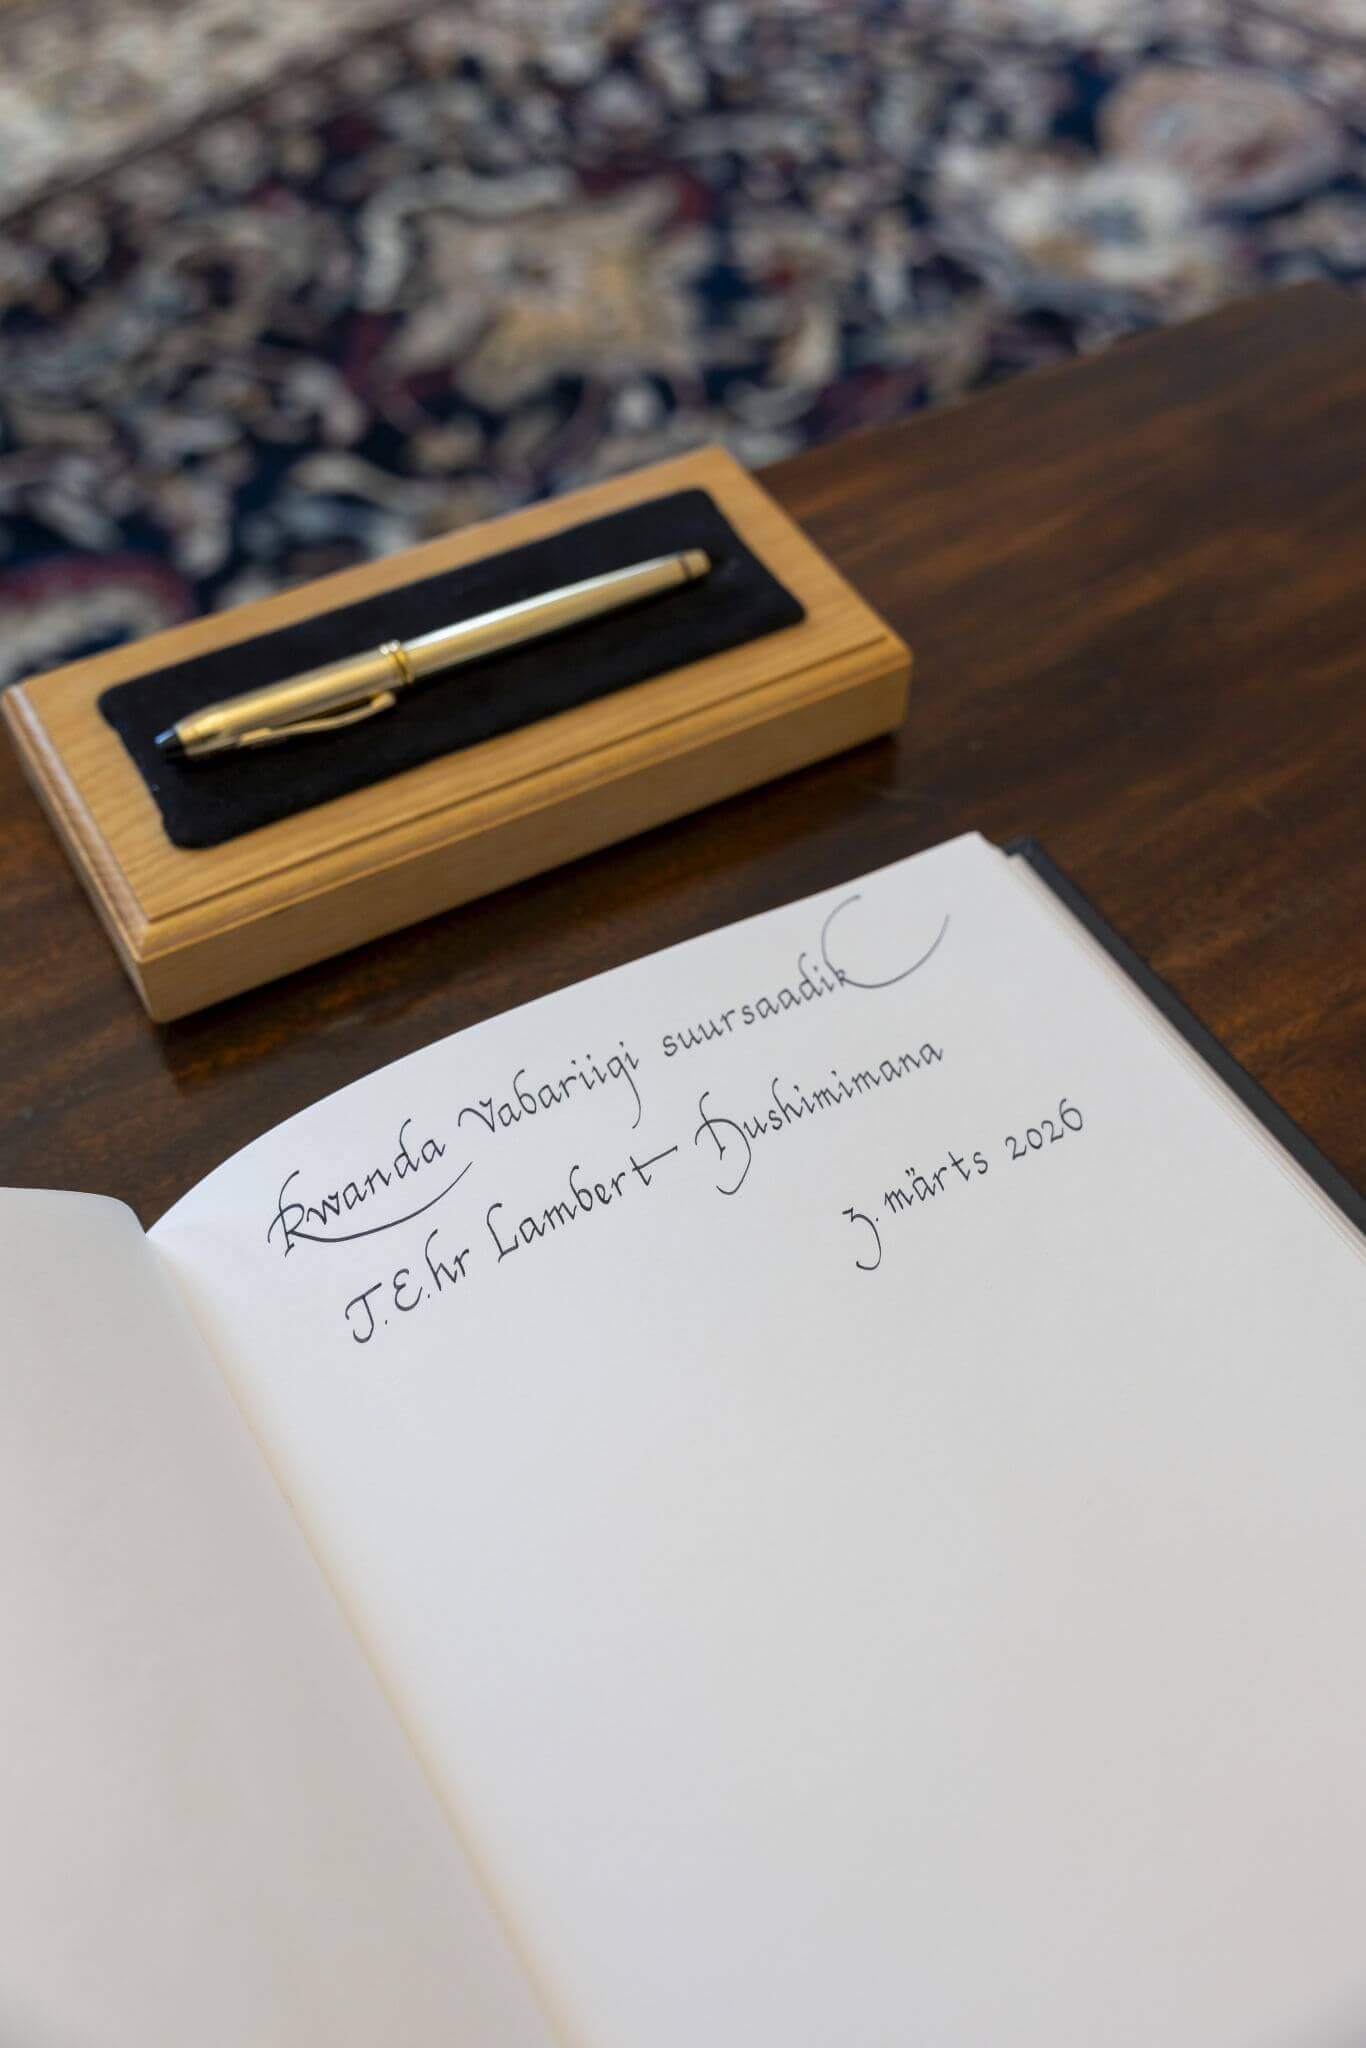 Rwanda Vabariigi suursaadik
T.E.hr Lambert Dushimimana
3. märts 2026